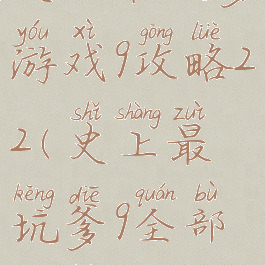 yóu xì gōng lüè
游戏9攻略2
shǐ shàng zuì
2(史上最
kēng diē quán bù
坑爹9全部